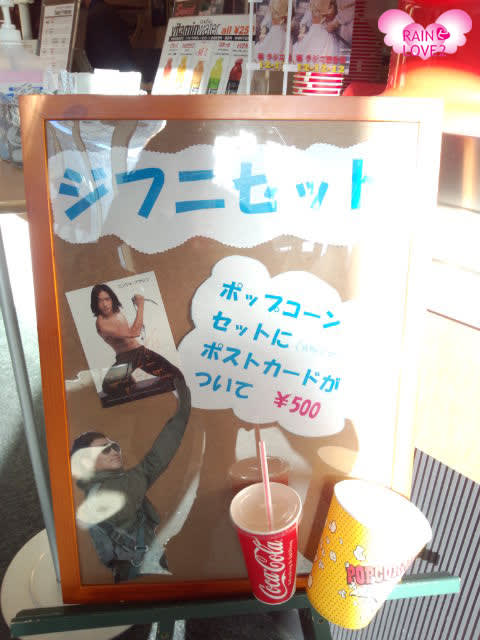 RAINと
LOVE2
vitaminwater
all ¥25
ジフニセット
ニンジャ・アサシン
ポップコーン
セットに
ポストカードが
ついて
¥500
Coca-Cola
POPCORN